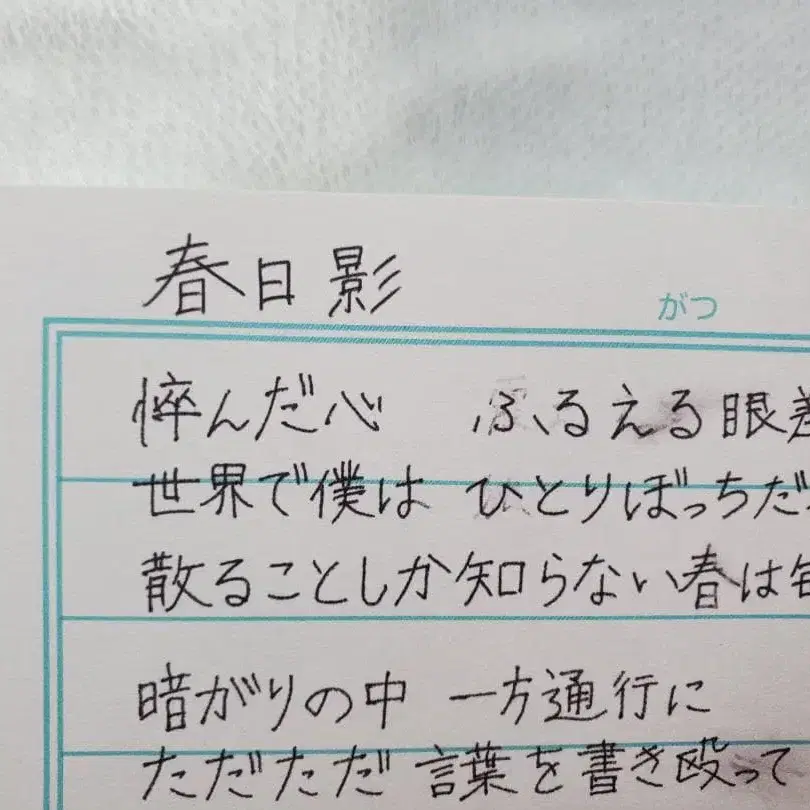 春日影
がつ
悴んだ心 ふるえる眼差
世界で僕は ひとりぼっちだ
散ることしか知らない春は毎
暗がりの中 一方通行に
ただただ 言葉を書き殴って